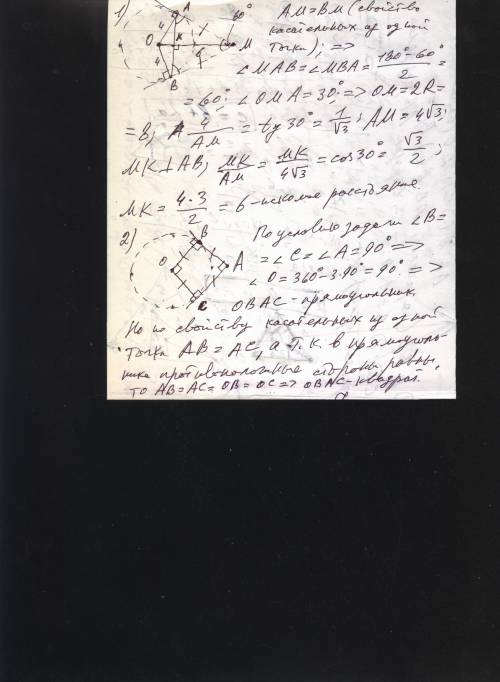 1) A 60° AM = BM (свойство
касательных из одной
точки); =>
4 O K M 4 B
∠MAB = ∠MBA = (180° - 60°)/2 =
= 60°; ∠OMA = 30°; => OM = 2R =
= 8; 4/AM = tg 30° = 1/√3; AM = 4√3;
MK ⊥ AB; MK/AM = MK/4√3 = cos 30° = √3/2;
MK = 4·3/2 = 6 - искомое расстояние.
2) B По условию задачи ∠B =
O A = ∠C = ∠A = 90° =>
∠O = 360° - 3·90° = 90° =>
C OBAC - прямоугольник.
Но по свойству касательных из одной
точки AB = AC, а т.к. в прямоуголь-
нике противоположные стороны равны,
то AB = AC = OB = OC => OBAC - квадрат.